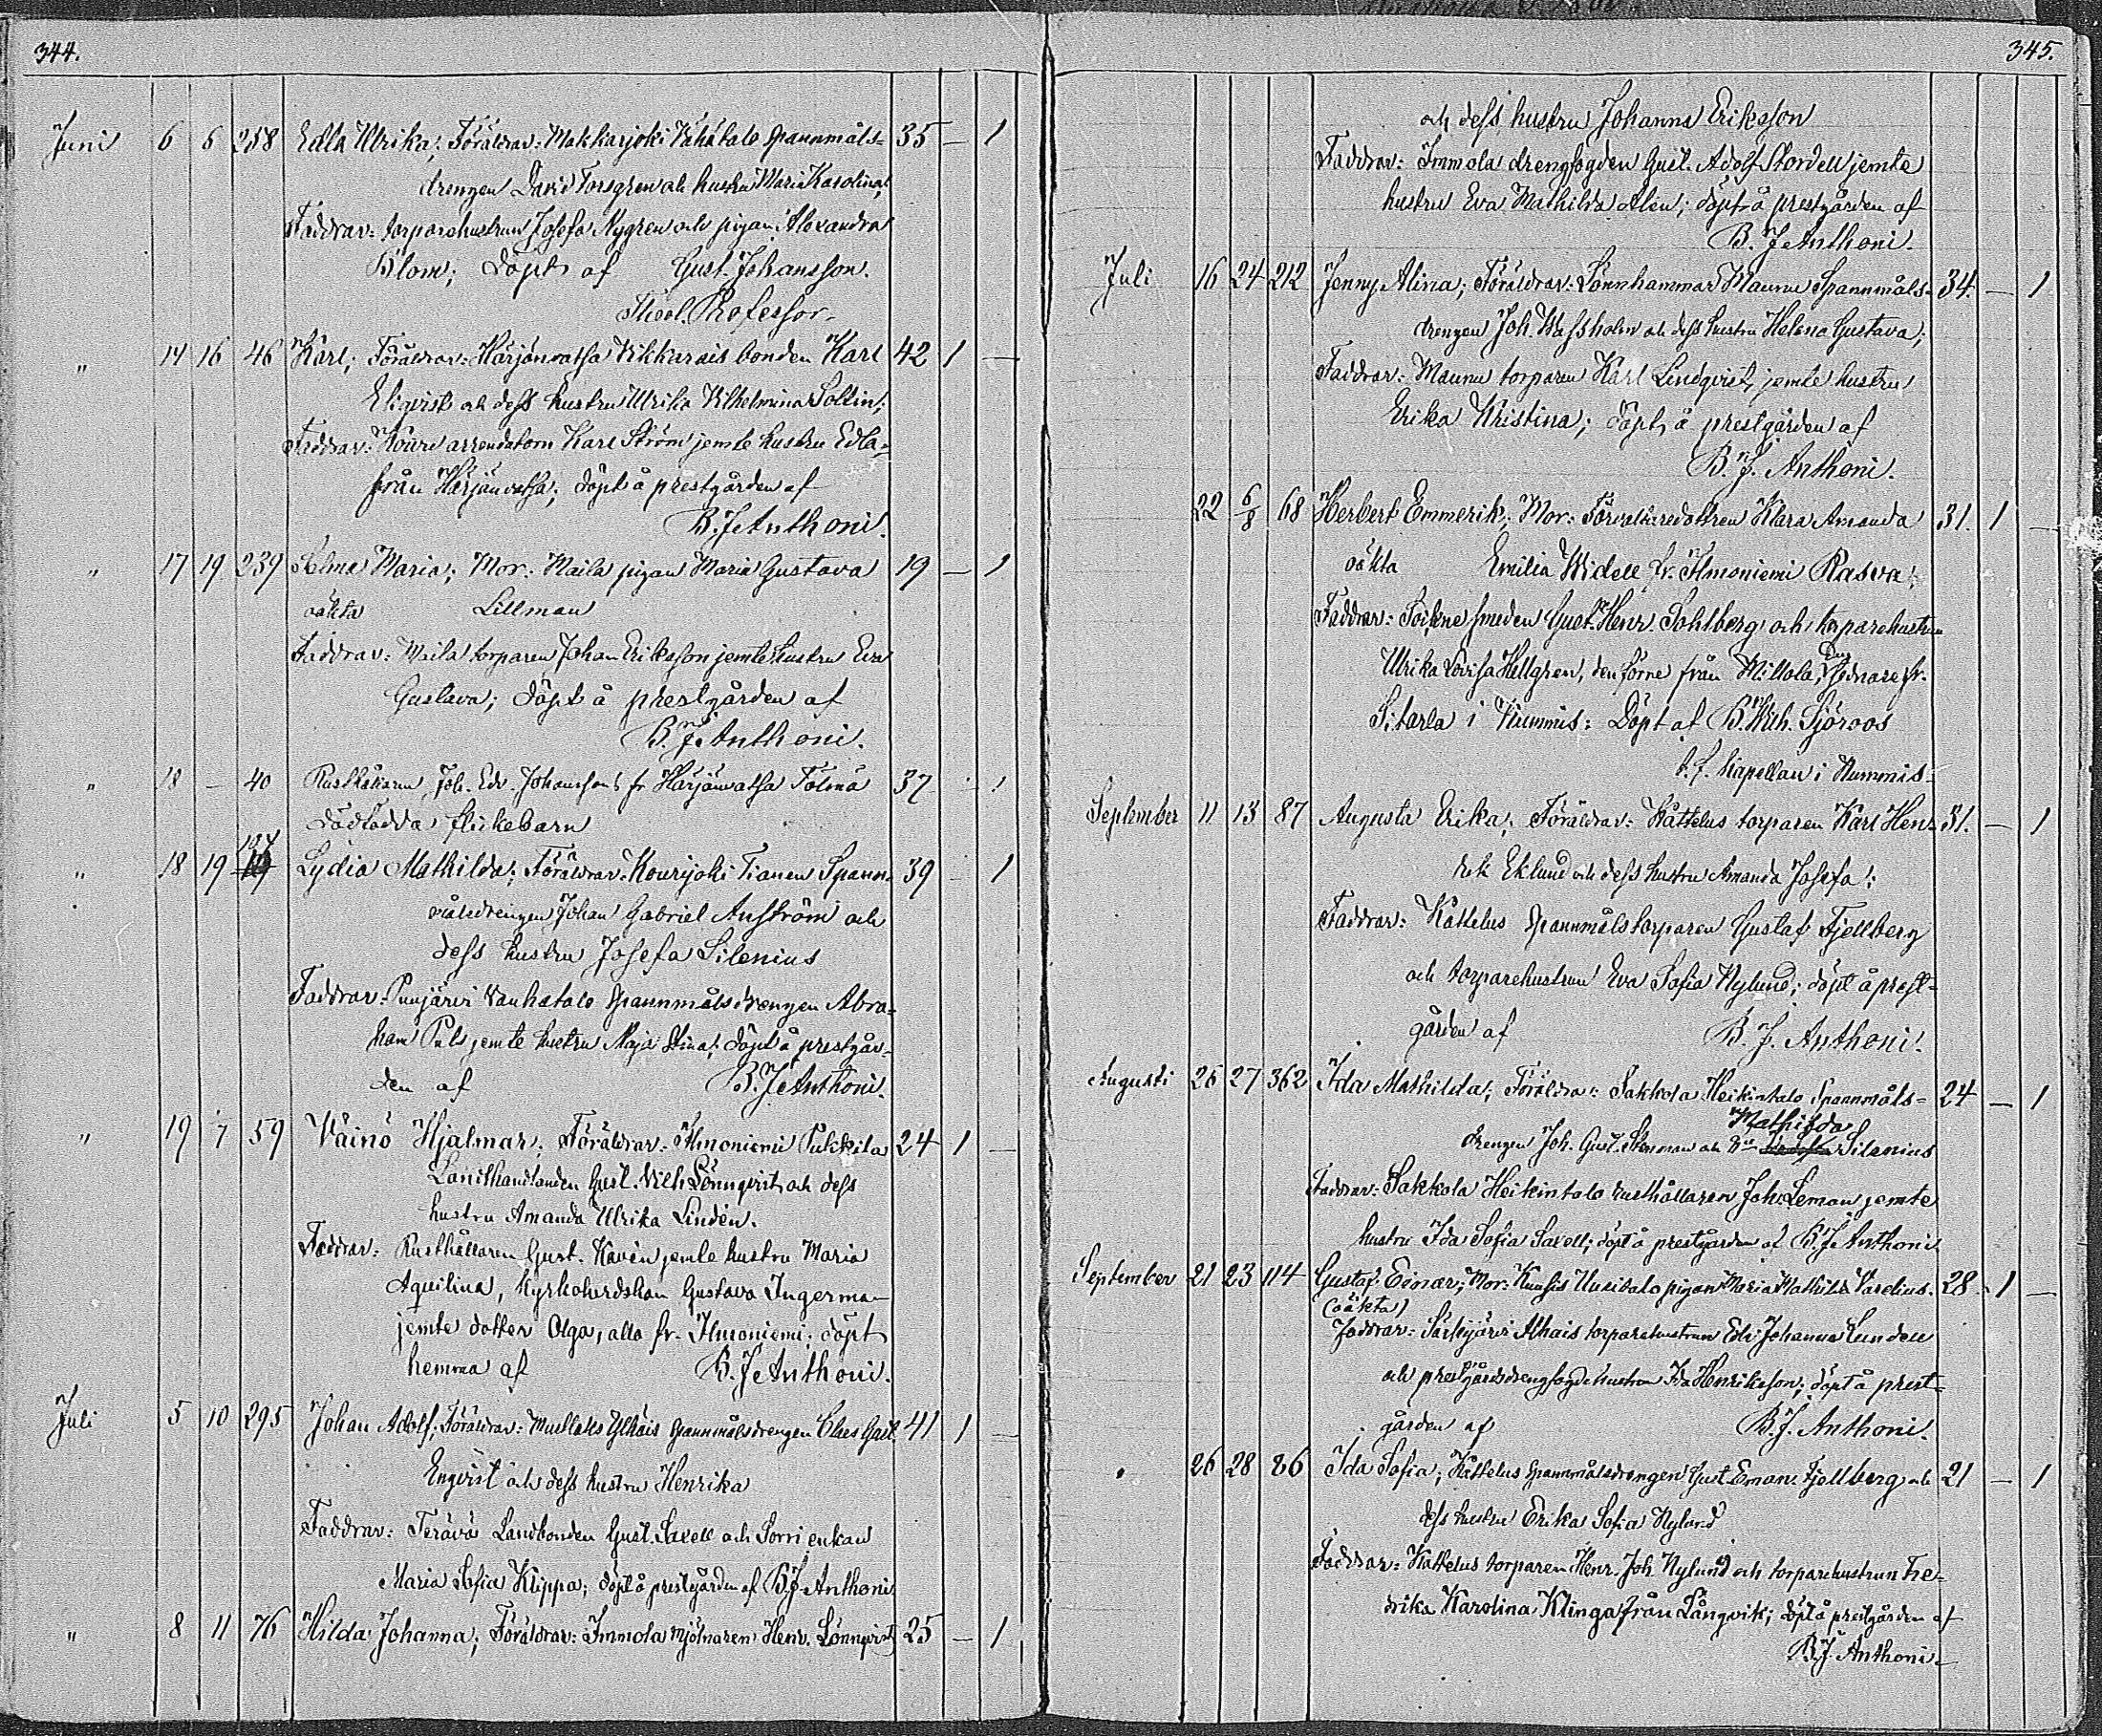 344.
Juni 6 6 258 Edla Ulrika; Föräldrar: Makkarjoki Vähätalo Spannmåls= 35 — 1
drengen David Forsgren och hustru Maria Karolina;
Faddrar: torparehustrun Josefa Nygren och pigan Alexandra
Blom; Döpt af Gust. Johansson.
Theol. Professor.
" 14 16 46 Karl; Föräldrar: Härjänvatsa Vikkarais bonden Karl 42 1 —
Eliqvist och dess hustru Ulrika Vilhelmina Soltin;
Faddrar: Kouru arrendatorn Karl Ström jemte hustru Edla
från Härjänvatsa; döpt å prestgården af
B. J. Anthoni.
" 17 19 239 Selma Maria; Mor: Maila pigan Maria Gustava 19 — 1
oäkta Lillman
Faddrar: Maila torparen Johan Eriksson jemte hustru Eva
Gustava; döpt å prestgården af
B. J. Anthoni.
" 18 — 40 Rusthållaren Joh. Edv. Johansson fr Härjänvatsa Tölmä 37 · 1
dödfödda flickebarn
" 18 19 104 Lydia Mathilda; Föräldrar: Kourijoki Tianen Spann= 39 — 1
målsdrengen Johan Gabriel Anström och
dess hustru Josefa Silenius
Faddrar: Punjärvi Vanhatalo Spannmålsdrengen Abra=
ham Puls jemte hustru Maja Stina; döpt å prestgår=
den af B. J. Anthoni.
" 19 7 59 Väinö Hjalmar; Föräldrar: Ilmoniemi Pukkila 24 1 —
Lanthandlanden Gust. Vilh Lönnqvist och dess
hustru Amanda Ulrika Lindén.
Faddrar: Rusthållaren Gust. Kavén jemte hustru Maria
Aquilina, Kyrkoherdskan Gustava Ingerman
jemte dotter Olga, alla fr. Ilmoniemi; döpt
hemma af B. J. Anthoni.
Juli 5 10 295 Johan Adolf; Föräldrar: Ylhäis Spannmålsdrengen Claes Gust. 41 1 —
Enqvist och dess hustru Henrika
Faddrar: Terävä Landbonden Gust. Saxell och Sorri enkan
Maria Sofia Klippa; döpt å prestgården af B. J. Anthoni
" 8 11 76 Hilda Johanna; Föräldrar: Immola mjölnaren Henr. Lönnqvist 25 — 1
345.
och dess hustru Johanna Eriksson
Faddrar: Immola drengfogden Gust. Adolf Stordell jemte
hustru Eva Mathilda Alen; döpt å prestgården af
B. J. Anthoni.
Juli 16 24 212 Jenny Alina; Föräldrar: Lönnhammar Maunu Spannmåls= 34. — 1
drengen Joh. Wassholm och dess hustru Helena Gustava;
Faddrar: Maunu torparen Karl Lindqvist, jemte hustru
Erika Kristina; döpt å prestgården af
B. J. Anthoni.
22 6/8 68 Herbert Emmerik; Mor: Förvaltaredottren Klara Amanda 31. 1 —
oäkta Emilia Widell fr. Ilmoniemi Rasva;
Faddrar: Sockne smeden Gust. Henr. Sohlberg och torparehustrun
Ulrika Lovisa Hellgren, den förre från Millola, den sednare fr.
Sitarla i Nummis: Döpt af B. Wilh. Sjöroos
t. f. Kapellan i Nummis.
September 11 13 87 Augusta Erika; Föräldrar: Kättelus torparen Karl Hen= 31. — 1
rik Eklund och dess hustru Amanda Josefa;
Faddrar: Kättelus Spannmålstorparen Gustaf Fjellberg
och torparehustrun Eva Sofia Nylund; döpt å prest=
gården af B. J. Anthoni.
Augusti 26 27 362 Ida Mathilda; Föräldrar: Sakkola Heikintalo Spannmåls= 24 — 1
Mathilda
drengen Joh. Gust. Stenman och Silenius
Faddrar: Sakkola Heikintalo rusthållaren Joh. Leman jemte
hustru Ida Sofia Saxell; döpt å prestgården af B. J. Anthoni
September 21 23 114 Gustaf Einar; Mor: Uusitalo pigan Maria Mathilda Varelius. 28 - 1 —
(oäkta)
Faddrar: Särkijärvi Alhais torparehustrun Edv. Johanna Lundell
och prestgårdsdrengfogdehustrun Ida Henriksson; döpt å prest=
gården af B. J. Anthoni.
" 26 28 86 Ida Sofia; Kättelus Spannmålsdrengen Gust. Eman. Fjellberg och 21 — 1
dess hustru Erika Sofia Nylund
Faddrar: Kattelus torparen Henr. Joh. Nylund och torparehustrun Fre=
drika Karolina Klinga från Långvik; döpt å prestgården af
B. J. Anthoni.